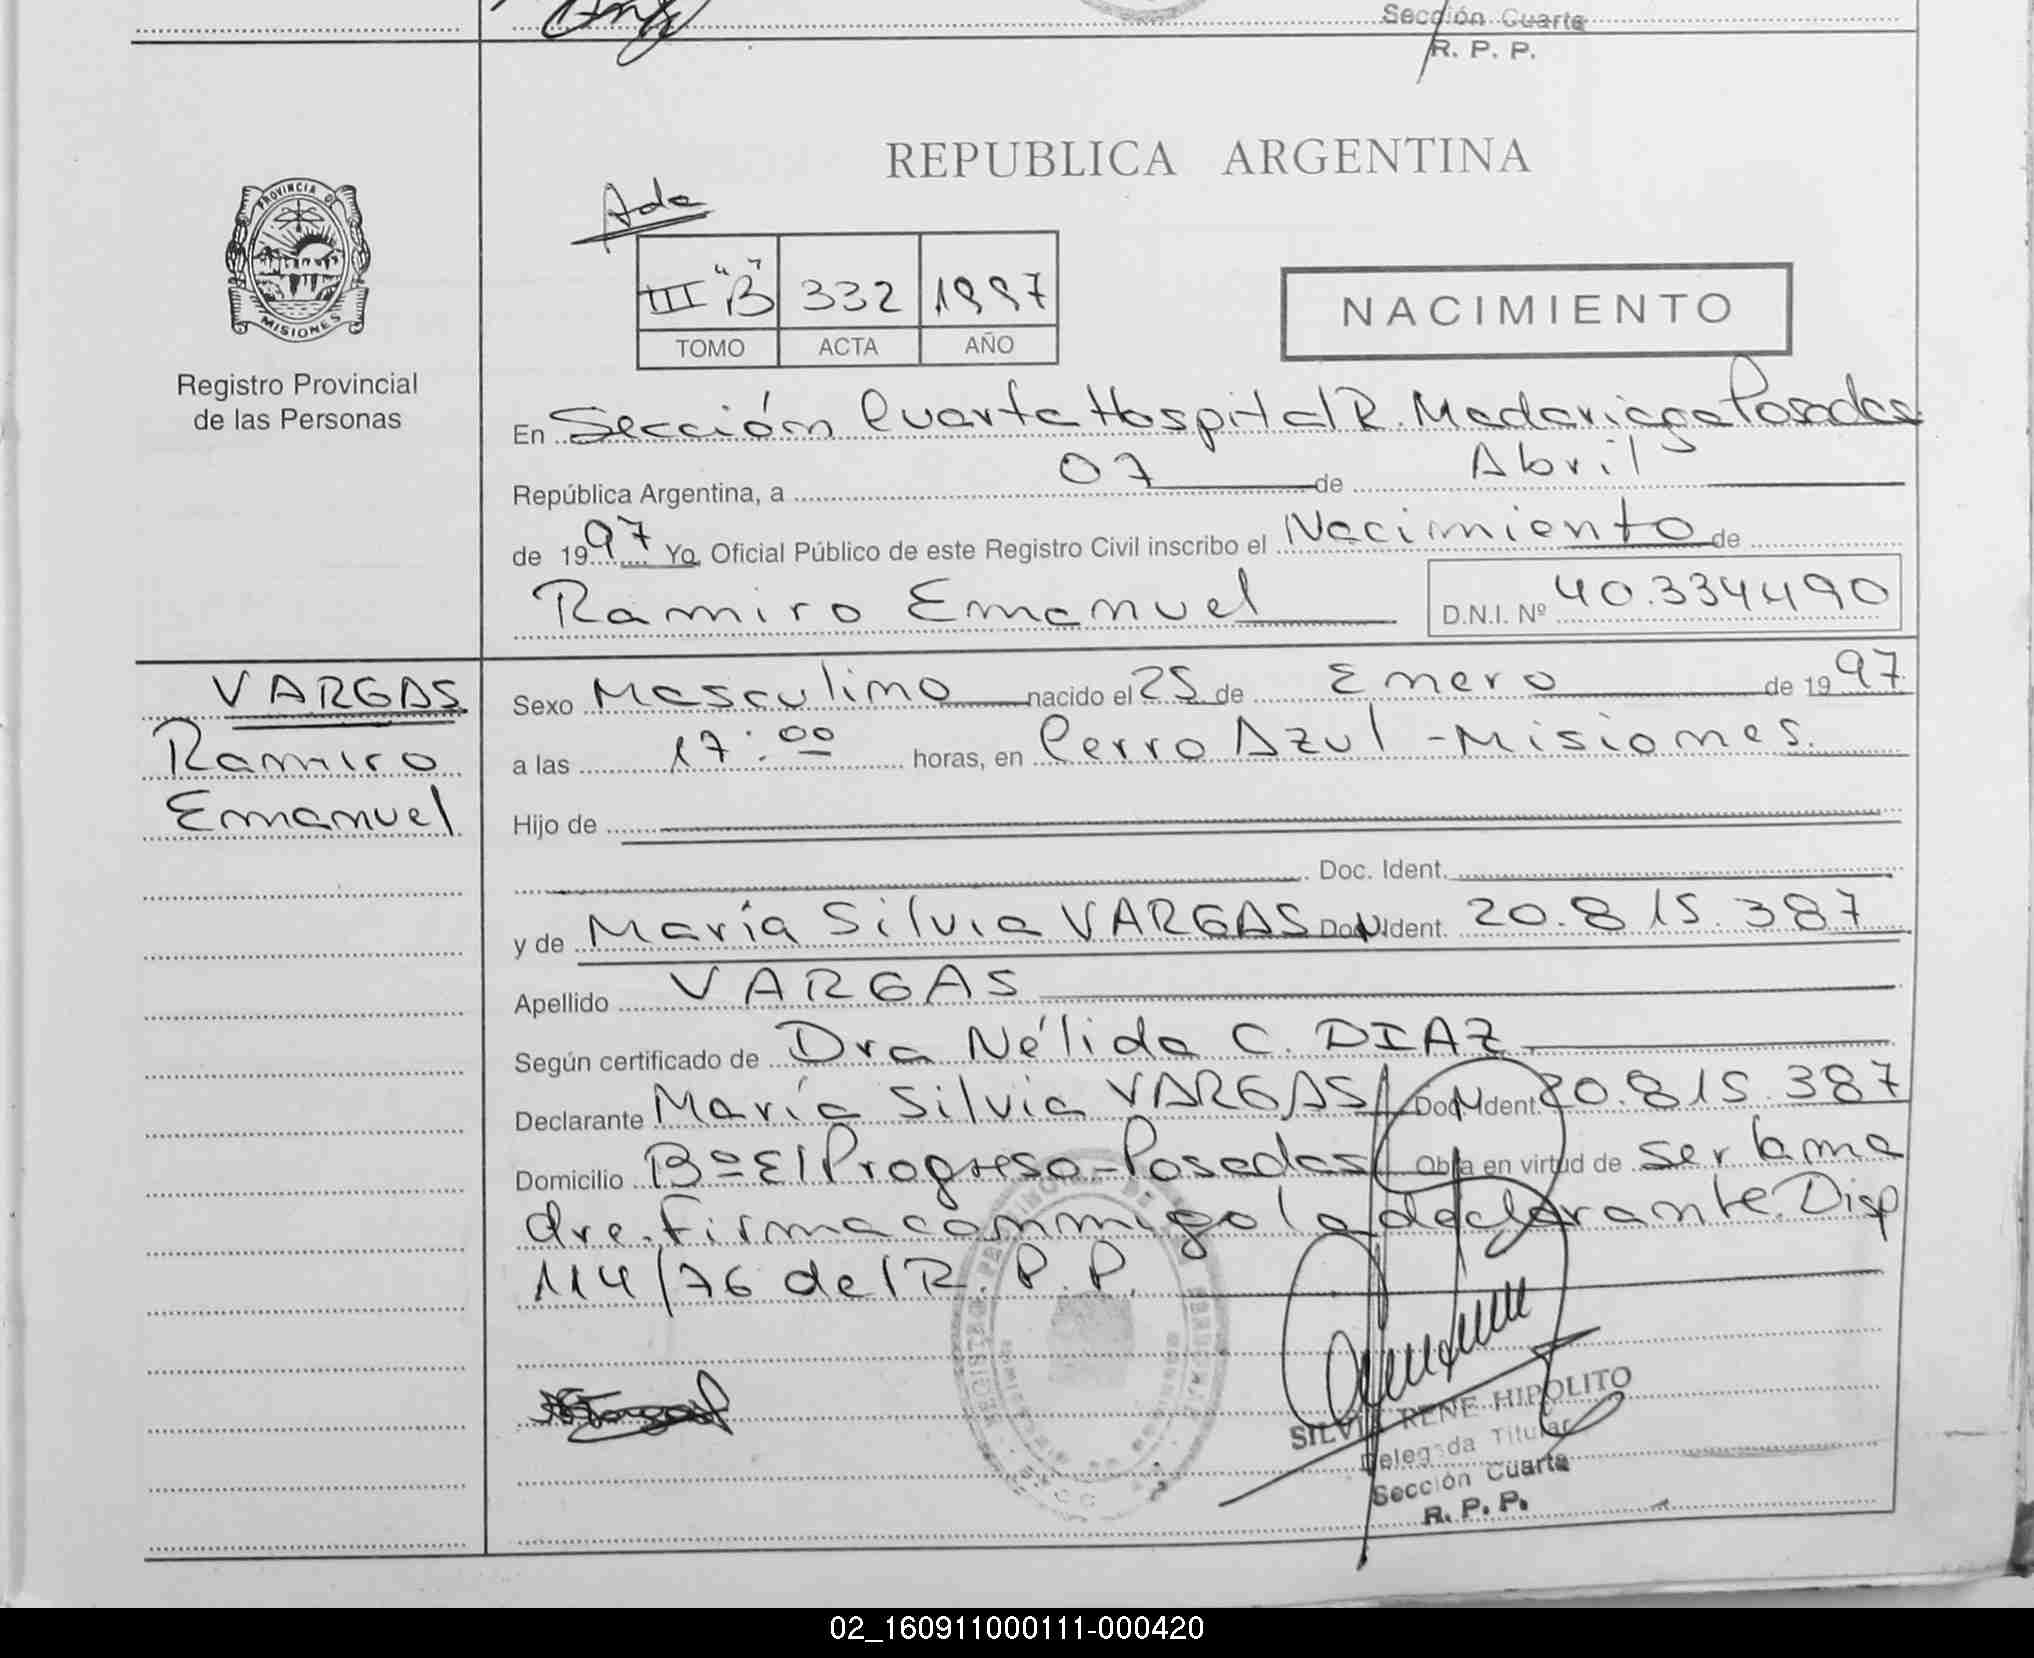 Sección Cuarta
R. P. P.
REPUBLICA ARGENTINA
PROVINCIA D
MISIONES
Registro Provincial
de las Personas
III "B" 332 1997
TOMO ACTA AÑO
NACIMIENTO
En Sección Cuarta Hospital R. Madariaga Posadas
República Argentina, a 07 de Abril
de 1997 Yo, Oficial Público de este Registro Civil inscribo el Nacimiento de
Ramiro Emanuel D.N.I. Nº 40.334490
VARGAS
Ramiro
Emanuel
Sexo Masculino nacido el 25 de Enero de 1997
a las 17:00 horas, en Cerro Azul - Misiones.
Hijo de
Doc. Ident.
y de María Silvia VARGAS Doc. Ident. 20.815.387
Apellido VARGAS
Según certificado de Dra Nélida C. DIAZ
Declarante María Silvia VARGAS Doc. Ident. 20.815.387
Domicilio Bº El Progreso - Posadas Obra en virtud de ser la ma
dre. Firma conmigo la declarante. Disp
114/76 del R. P. P.
SILVIA RENE HIPOLITO
Delegada Titular
Sección Cuarta
R. P. P.
02_160911000111-000420